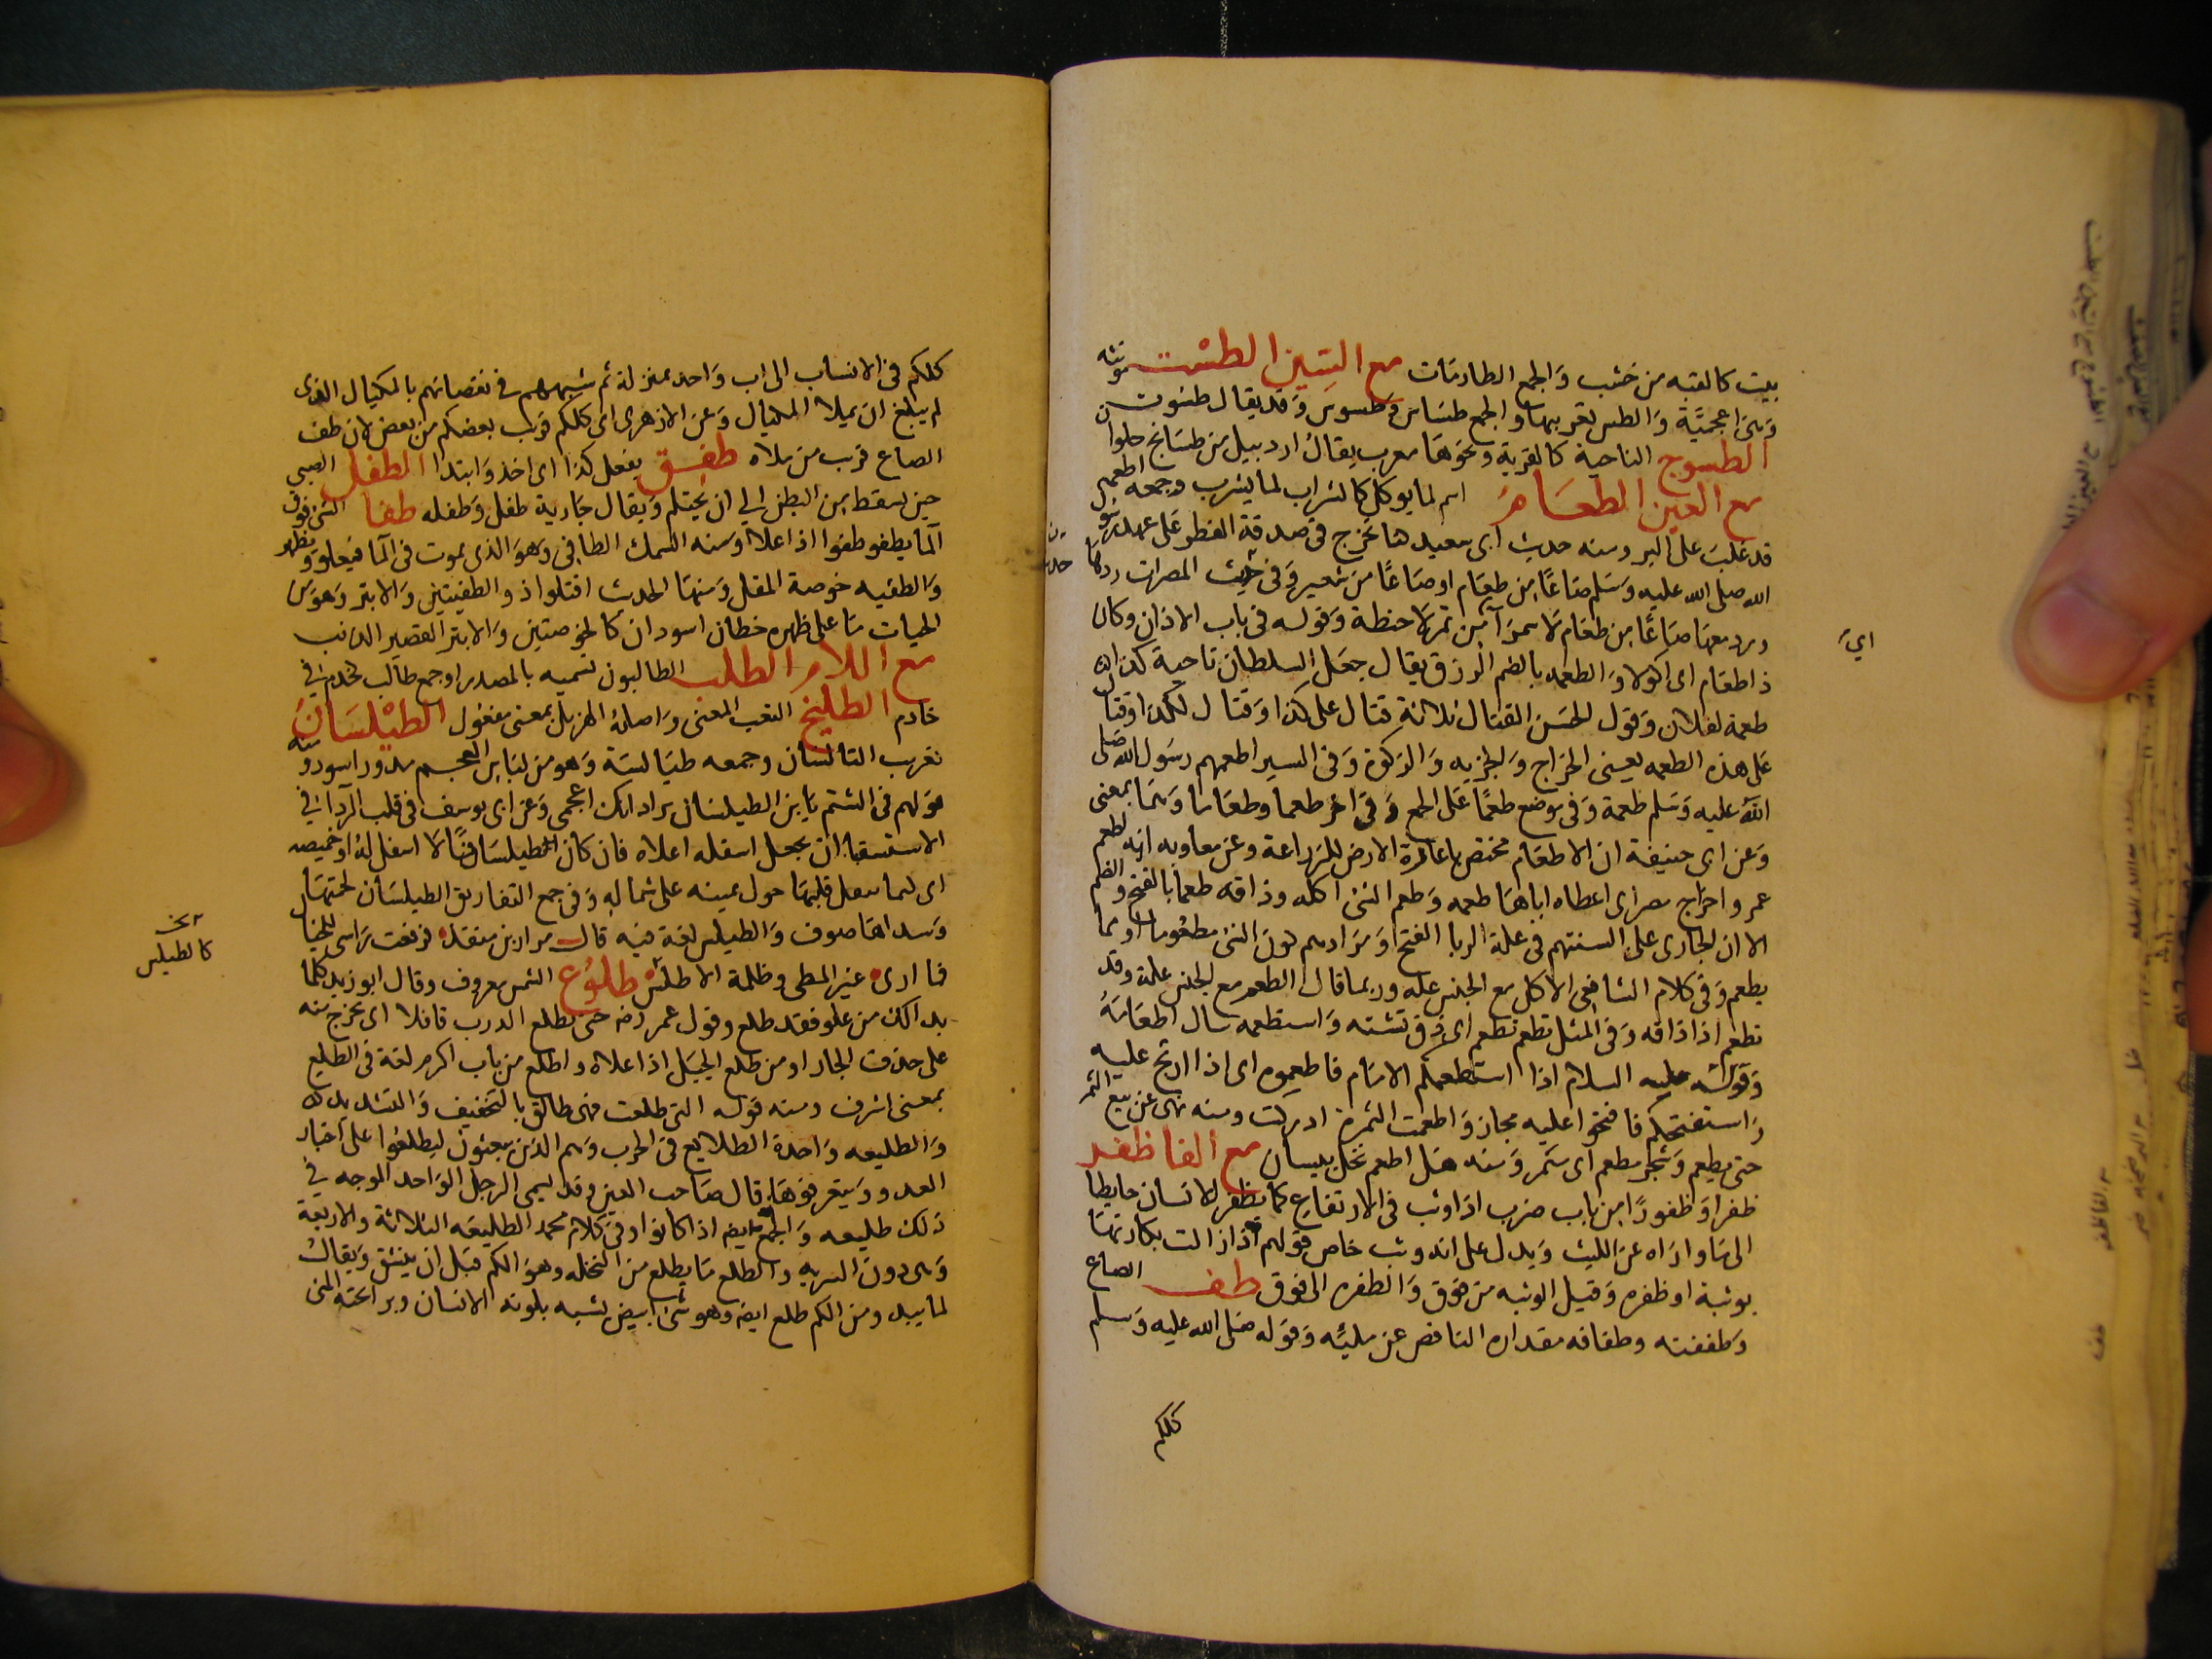 بيت كالقبه من خشب وَالجمع الطارمَات مع السِين الطسْت مونثه
وَهى اعجمَيَّة وَالطس تعريبها والجمع طسَاس وَطسوس وَقد يقال طسوت
الطسوج الناحية كالقرية ونحوهَا معرب يقال اردبيل من طسَاسج حلوان
مع العين الطعَام اسم لما يوكل كالشراب لما يشرب وجمعه اطعمه
قد غلبَ على البر ومنه حديث ابى سعيد كنا نخرج فى صدقة الفطر على عهد رسول
الله صلى الله عليه وَسَلم صَاعًا مِن طعَام اوصَاعًا مِن شعير وَفى حديث المصرات ردها
ورد معهَا صَاعًا مِن طعَام لَا سمرَآ اىَ مِن تمر لَا حنطة وَقوله فى باب الاذان وكان
ذا طعَام اى اكولا وَالطعمه بالضم الرزق يقال جعَل السلطان ناحية كذا
طعمة لفلان وَقول الحسَن القتال ثلاثة قتال على كذا وَقتال لكذا وقتال
عَلى هذه الطعمه يعنى الخراج وَالجزيه وَالزكوة وَفى السير اطعمهم رسَول الله صَلى
اللهُ عليه وَسَلم طعمة وَفى موضع طعمًا عَلى الجمع وَفى اخر طعما وطعَاما وَهمَا بمعنى
وَعن ابى حنيفة ان الاطعَام مختص باعَارة الارض للزراعة وعن معاويه انه اطعم
عمرو اخراج مصر اى اعطاه اياهَا طعمه وَطعم الشئ اكله وذاقه طعما بالفتح وَالضم
الا ان الجارى على السنتهم فى علة الربا الفتح وَمرَادهم كون الشئ مطعُوما او مما
يطعم وَفى كلام الشافعى الاكل مع الجنس علة وربما قال الطعم مع الجنس علة وقد
تطعم اذا ذاقه وَفى المثل تطعم تطعم اى ذق تشته وَاستطعمه سال اطعَامَهُ
وَقولَه عليه السلام اذا استطعمكم الامَام فاطعموه اى اذا ارتج عليه
وَاستفتحكم فافتحوا عليه مجاز وَاطعمت الثمرة ادركت ومنه نهى عن بيع الثمر
حتى يطعم وَشجر مطعم اى مثمر وَمنه هَل اطعم نخل بيسان مع الفا ظفر
ظفرا وَظفورًا مِن باب ضرب اذا وثب فى الارتفاع كما يظفر الانسان حايطا
الى مَا وراه عن الليث وَيدل على انه وثب خاص قولهم اذا زالت بكارتهَا
بوثبة او ظفره وَقيل الوثبه من فوق وَالظفره الى فوق طف الصاع
وَطففته وطفافه مقداره الناقص عن مليه وَقوله صَلى الله عليه وَسلم
كلكم
كلكم فى الانساب الى اب وَاحد بمنزلة ثم شبههم فى نقصانهم بالمكيال الذى
لم يبلغ ان يملا المكيال وَعن الازهرى اى كلكم قرَيب بعضكم من بعض لان طف
الصاع قرب من ملاه طفِق يفعل كذا اى اخذ وَابتدا الطفل الصبى
حين يسقط مِن البطن الى ان يحتلم وَيقال جَارية طفل وَطفله طفا الشئ فوق
المآ يطفو طفوا اذا علا ومنه السمك الطافى وَهوَ الذى يموت فى المآ فيعلو وَيظهر
وَالطفيه خوصة المقل وَمنهَا الحديث اقتلوا ذو الطفيتين وَالابتر وَهوَ من
الحيات مَا على ظهره خطان اسودان كالخوصتين وَالابتر القصير الذنب
مع اللام الطلب الطالبون تسميه بالمصدر او جمع طالب كخدم فى
خادم الطليح التعب المعنى وَاصله المهزول بمعنى مفعُول الطيْلسَانُ
تعريب التالسان وجمعه طيَالسَة وَهو من لبَاس العجم مدور اسود ومنه
قولهم فى الشتم يَا بن الطيلسَان يراد انك اعجمى وَعن ابى يوسف فى قلب الردآ فى
الاستسقا ان يجعل اسفله اعلاه فان كان طيلسَانًا لا اسفل لهُ او خميصه
اى كسا يثقل قلبهَا حول يمينه على شماله وَفى جمع التفاريق الطيلسَان لحمتهَا
وَسداهَا صوف وَالطيلس لغة فيه قال مرار بن منقذ فرفعت رَاسى للخيال
فما ارى غير المطى وظلمة الاطلس طلُوع الشمس معروف وقال ابو زيد كلما
بدا لك من علو فقد طلع وقول عمر رضه حتى يطلع الدرب قافلا اى يخرج منه
على حذف الجار او من طلع الجبَل اذا علاه واطلع من باب اكرم لغة فى اطلع
بمعنى اشرف ومنه قوله التى طلعت فهى طالق بالتخفيف وَالتشديد
وَالطليعه وَاحدة الطلايع فى الحرب وَهم الذين يبعثون ليطلعوا على اخبار
العدو وَيتعرفونهَا قال صَاحب العين وقد يسمى الرجل الوَاحد الوجه فى
ذلك طليعه وَالجمع ايضا اذا كانوا وفى كلام محمد الطليعَه الثلاثة والاربعة
وَهى دون السريه والطلع مَا يطلع من النخله وهوَ الكم قبل ان ينشق وَيقال
لما يبدو من الكم طلع ايضا وهو شئ ابيض يشبه بلونه الاسنان وبرائحته المنى
اىَ
كالطيلس